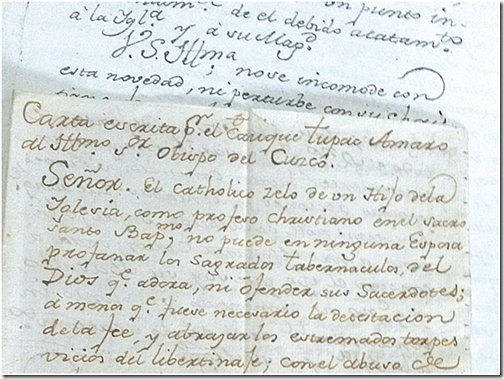 un punto in-
à la Igl.ª y à su Mag.d de el debido acatam.to
V. S. Illma
; no se incomode con
esta novedad, ni perturbe con su chris
Carta escrita p.r el Cacique tupac Amaro
al Illmo S.or Obispo del Cuzco.
Señor. El catholico zelo de un Hijo dela
Iglesia, como profeso christiano en el sacro
santo Bap.mo, no puede en ninguna Espora
profanar los Sagrados tabernaculos, del
Dios q.e adora, ni ofender sus Sacerdotes;
à menos q.e fuese necesario la detestacion
dela fee, y abrazar los estremados torpes
vicios del libertinaje; con el abuso de